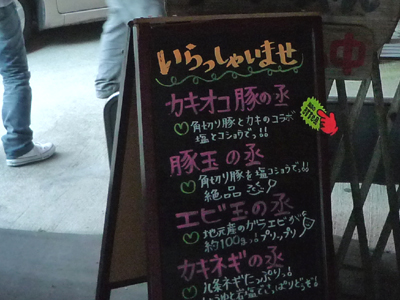 いらっしゃいませ
中
カキオコ豚の丞
角切り豚とカキのコラボ
塩とコショウでっ!!
豚玉の丞
角切り豚を塩コショウでっ!!
絶品
エビ玉の丞
地元産のガラエビが
約100匹っ!!プリップリ
カキネギの丞
九条ネギたっぷりっ!!